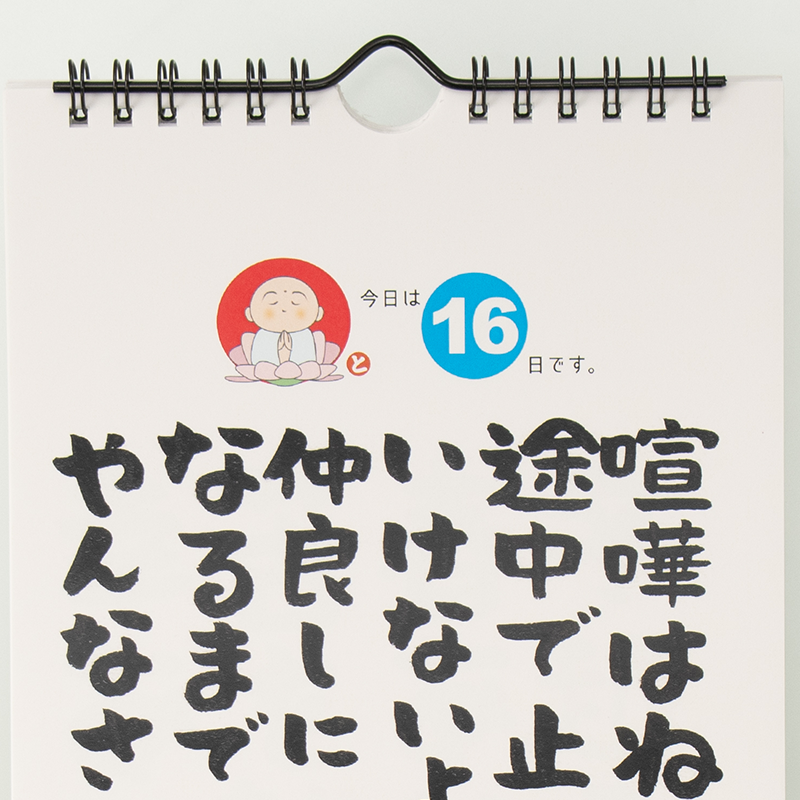 と
今日は
16
日です。
喧嘩はね
途中で止
いけないよ
仲良しに
なるまで
やんなさ